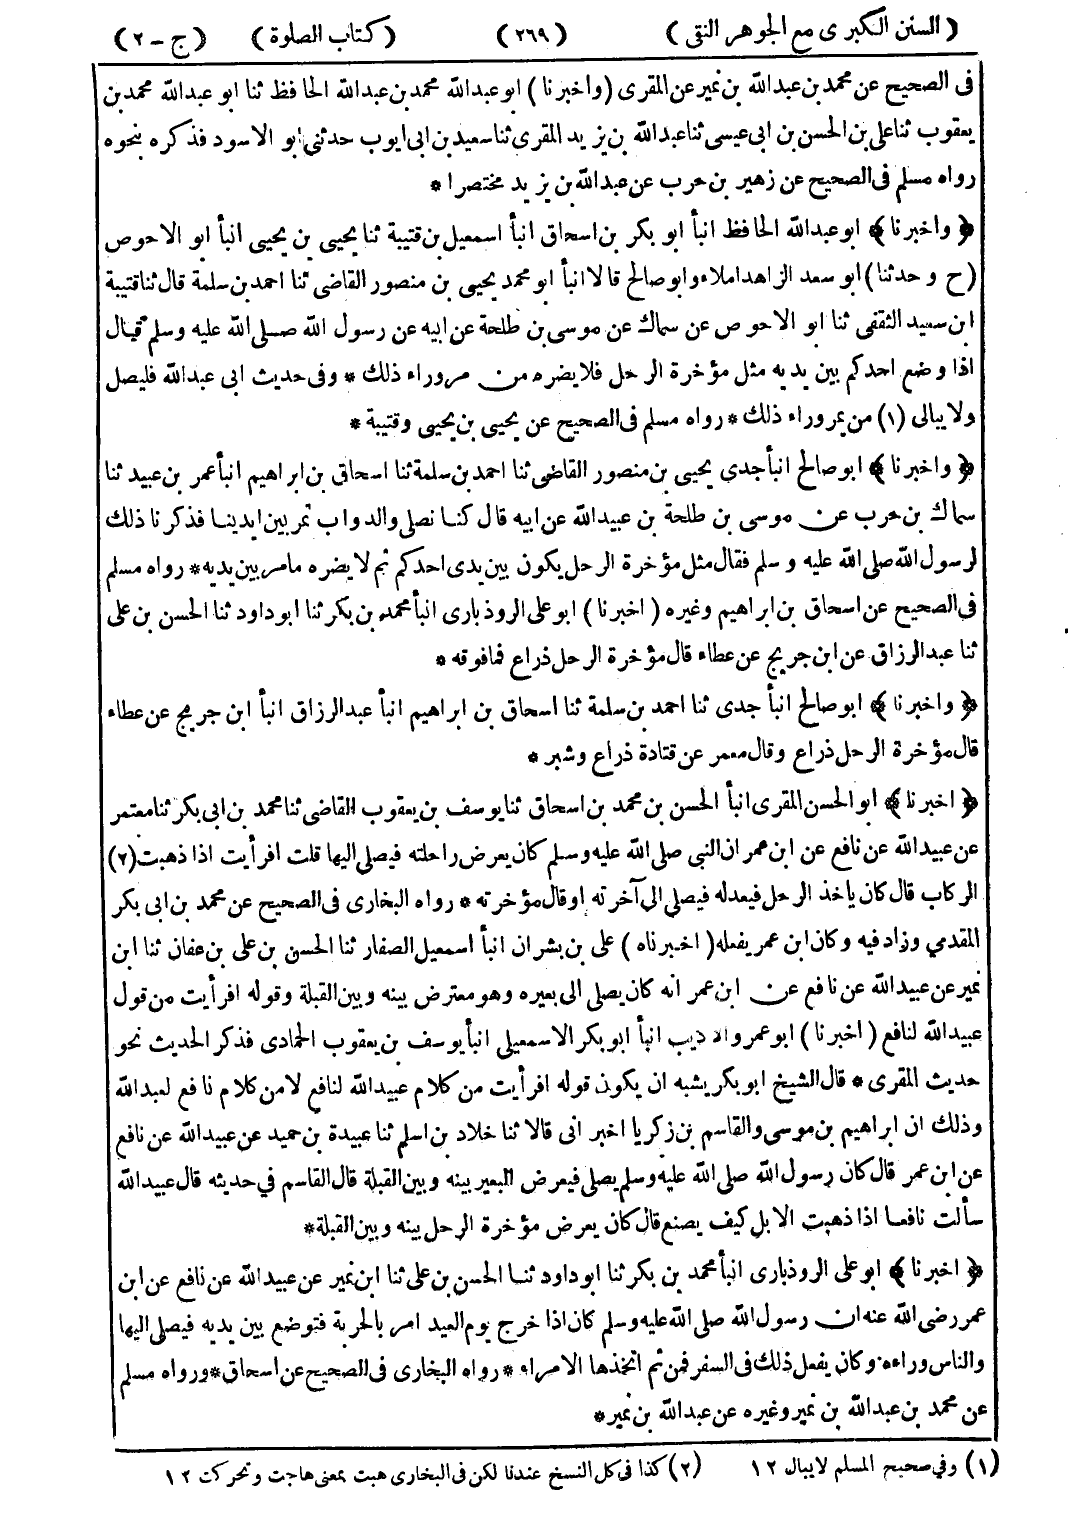 (السنن الكبرى مع الجوهر النقى) (٢٦٩) (كتاب الصلوة) (ج-٢)
فى الصحيح عن محمد بن عبدالله بن نمير عن المقرى (واخبرنا) ابو عبدالله محمد بن عبدالله الحافظ ثنا ابو عبدالله محمد بن
يعقوب ثنا على بن الحسن بن ابى عيسى ثنا عبدالله بن يزيد المقرى ثنا سعيد بن ابى ايوب حدثنى ابو الاسود فذكره بنحوه
رواه مسلم فى الصحيح عن زهير بن حرب عن عبدالله بن يزيد مختصرا *
﴿واخبرنا﴾ ابو عبدالله الحافظ انبأ ابو بكر بن اسحاق انبأ اسمعيل بن قتيبة ثنا يحيى بن يحيى انبأ ابو الاحوص
(ح وحدثنا) ابو سعد الزاهد املاء وابو صالح قالا انبأ ابو محمد يحيى بن منصور القاضى ثنا احمد بن سلمة قال ثنا قتيبة
ابن سعيد الثقفى ثنا ابو الاحوص عن سماك عن موسى بن طلحة عن ابيه عن رسول الله صلى الله عليه وسلم قال
اذا وضع احدكم بين يديه مثل مؤخرة الرحل فلا يضره من مر وراء ذلك * وفى حديث ابى عبدالله فليصل
ولا يبالى (١) من يمر وراء ذلك * رواه مسلم فى الصحيح عن يحيى بن يحيى وقتيبة *
﴿واخبرنا﴾ ابو صالح انبأ جدى يحيى بن منصور القاضى ثنا احمد بن سلمة ثنا اسحاق بن ابراهيم انبأ عمر بن عبيد ثنا
سماك بن حرب عن موسى بن طلحة بن عبيدالله عن ابيه قال كنا نصلى والدواب تمر بين ايدينا فذكرنا ذلك
لرسول الله صلى الله عليه وسلم فقال مثل مؤخرة الرحل يكون بين يدى احدكم ثم لا يضره ما مر بين يديه * رواه مسلم
فى الصحيح عن اسحاق بن ابراهيم وغيره (اخبرنا) ابو على الروذبارى انبأ محمد بن بكر ثنا ابو داود ثنا الحسن بن على
ثنا عبد الرزاق عن ابن جريج عن عطاء قال مؤخرة الرحل ذراع فما فوقه *
﴿واخبرنا﴾ ابو صالح انبأ جدى ثنا احمد بن سلمة ثنا اسحاق بن ابراهيم انبأ عبد الرزاق انبأ ابن جريج عن عطاء
قال مؤخرة الرحل ذراع وقال معمر عن قتادة ذراع وشبر *
﴿اخبرنا﴾ ابو الحسن المقرى انبأ الحسن بن محمد بن اسحاق ثنا يوسف بن يعقوب القاضى ثنا محمد بن ابى بكر ثنا معتمر
عن عبيدالله عن نافع عن ابن عمر ان النبى صلى الله عليه وسلم كان يعرض راحلته فيصلى اليها قلت افرأيت اذا ذهبت (٢)
الركاب قال كان ياخذ الرحل فيعدله فيصلى الى آخرته او قال مؤخرته * رواه البخارى فى الصحيح عن محمد بن ابى بكر
المقدمي وزاد فيه وكان ابن عمر يفعله (اخبرناه) على بن بشران انبأ اسمعيل الصفار ثنا الحسن بن على بن عفان ثنا ابن
نمير عن عبيدالله عن نافع عن ابن عمر انه كان يصلى الى بعيره وهو معترض بينه وبين القبلة وقوله افرأيت من قول
عبيدالله لنافع (اخبرنا) ابو عمرو الاديب انبأ ابو بكر الاسمعيلى انبأ يوسف بن يعقوب الحمادى فذكر الحديث نحو
حديث المقرى * قال الشيخ ابو بكر يشبه ان يكون قوله افرأيت من كلام عبيدالله لنافع لا من كلام نافع لعبدالله
وذلك ان ابراهيم بن موسى والقاسم بن زكريا اخبرانى قالا ثنا خلاد بن اسلم ثنا عبيدة بن حميد عن عبيدالله عن نافع
عن ابن عمر قال كان رسول الله صلى الله عليه وسلم يصلى فيعرض البعير بينه وبين القبلة قال القاسم في حديثه قال عبيدالله
سألت نافعا اذا ذهبت الابل كيف يصنع قال كان يعرض مؤخرة الرحل بينه وبين القبلة *
﴿اخبرنا﴾ ابو على الروذبارى انبأ محمد بن بكر ثنا ابو داود ثنا الحسن بن على ثنا ابن نمير عن عبيدالله عن نافع عن ابن
عمر رضى الله عنه ان رسول الله صلى الله عليه وسلم كان اذا خرج يوم العيد امر بالحربة فتوضع بين يديه فيصلى اليها
والناس وراءه وكان يفعل ذلك فى السفر فمن ثم اتخذها الامراء * رواه البخارى فى الصحيح عن اسحاق * ورواه مسلم
عن محمد بن عبدالله بن نمير وغيره عن عبدالله بن نمير *
(١) وفي صحيح المسلم لا يبال ١٢ (٢) كذا فى كل النسخ عندنا لكن فى البخارى هبت بمعنى هاجت وتحركت ١٢